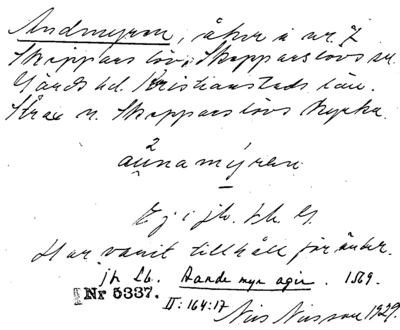 Andmyren, åker å nr. 7
Skeppars löv, Skepparslövs sn.
Gärds hd. Kristianstads län.
Strax n. Skepparslövs kyrka.
2
aŭnamýren
Ej i jb. Lh. G.
Har varit tillhåll för änder.
jb Lb. Aande myr ager. 1569.
Nr 5337.
II: 164:17
Nils Nilsson 1929.